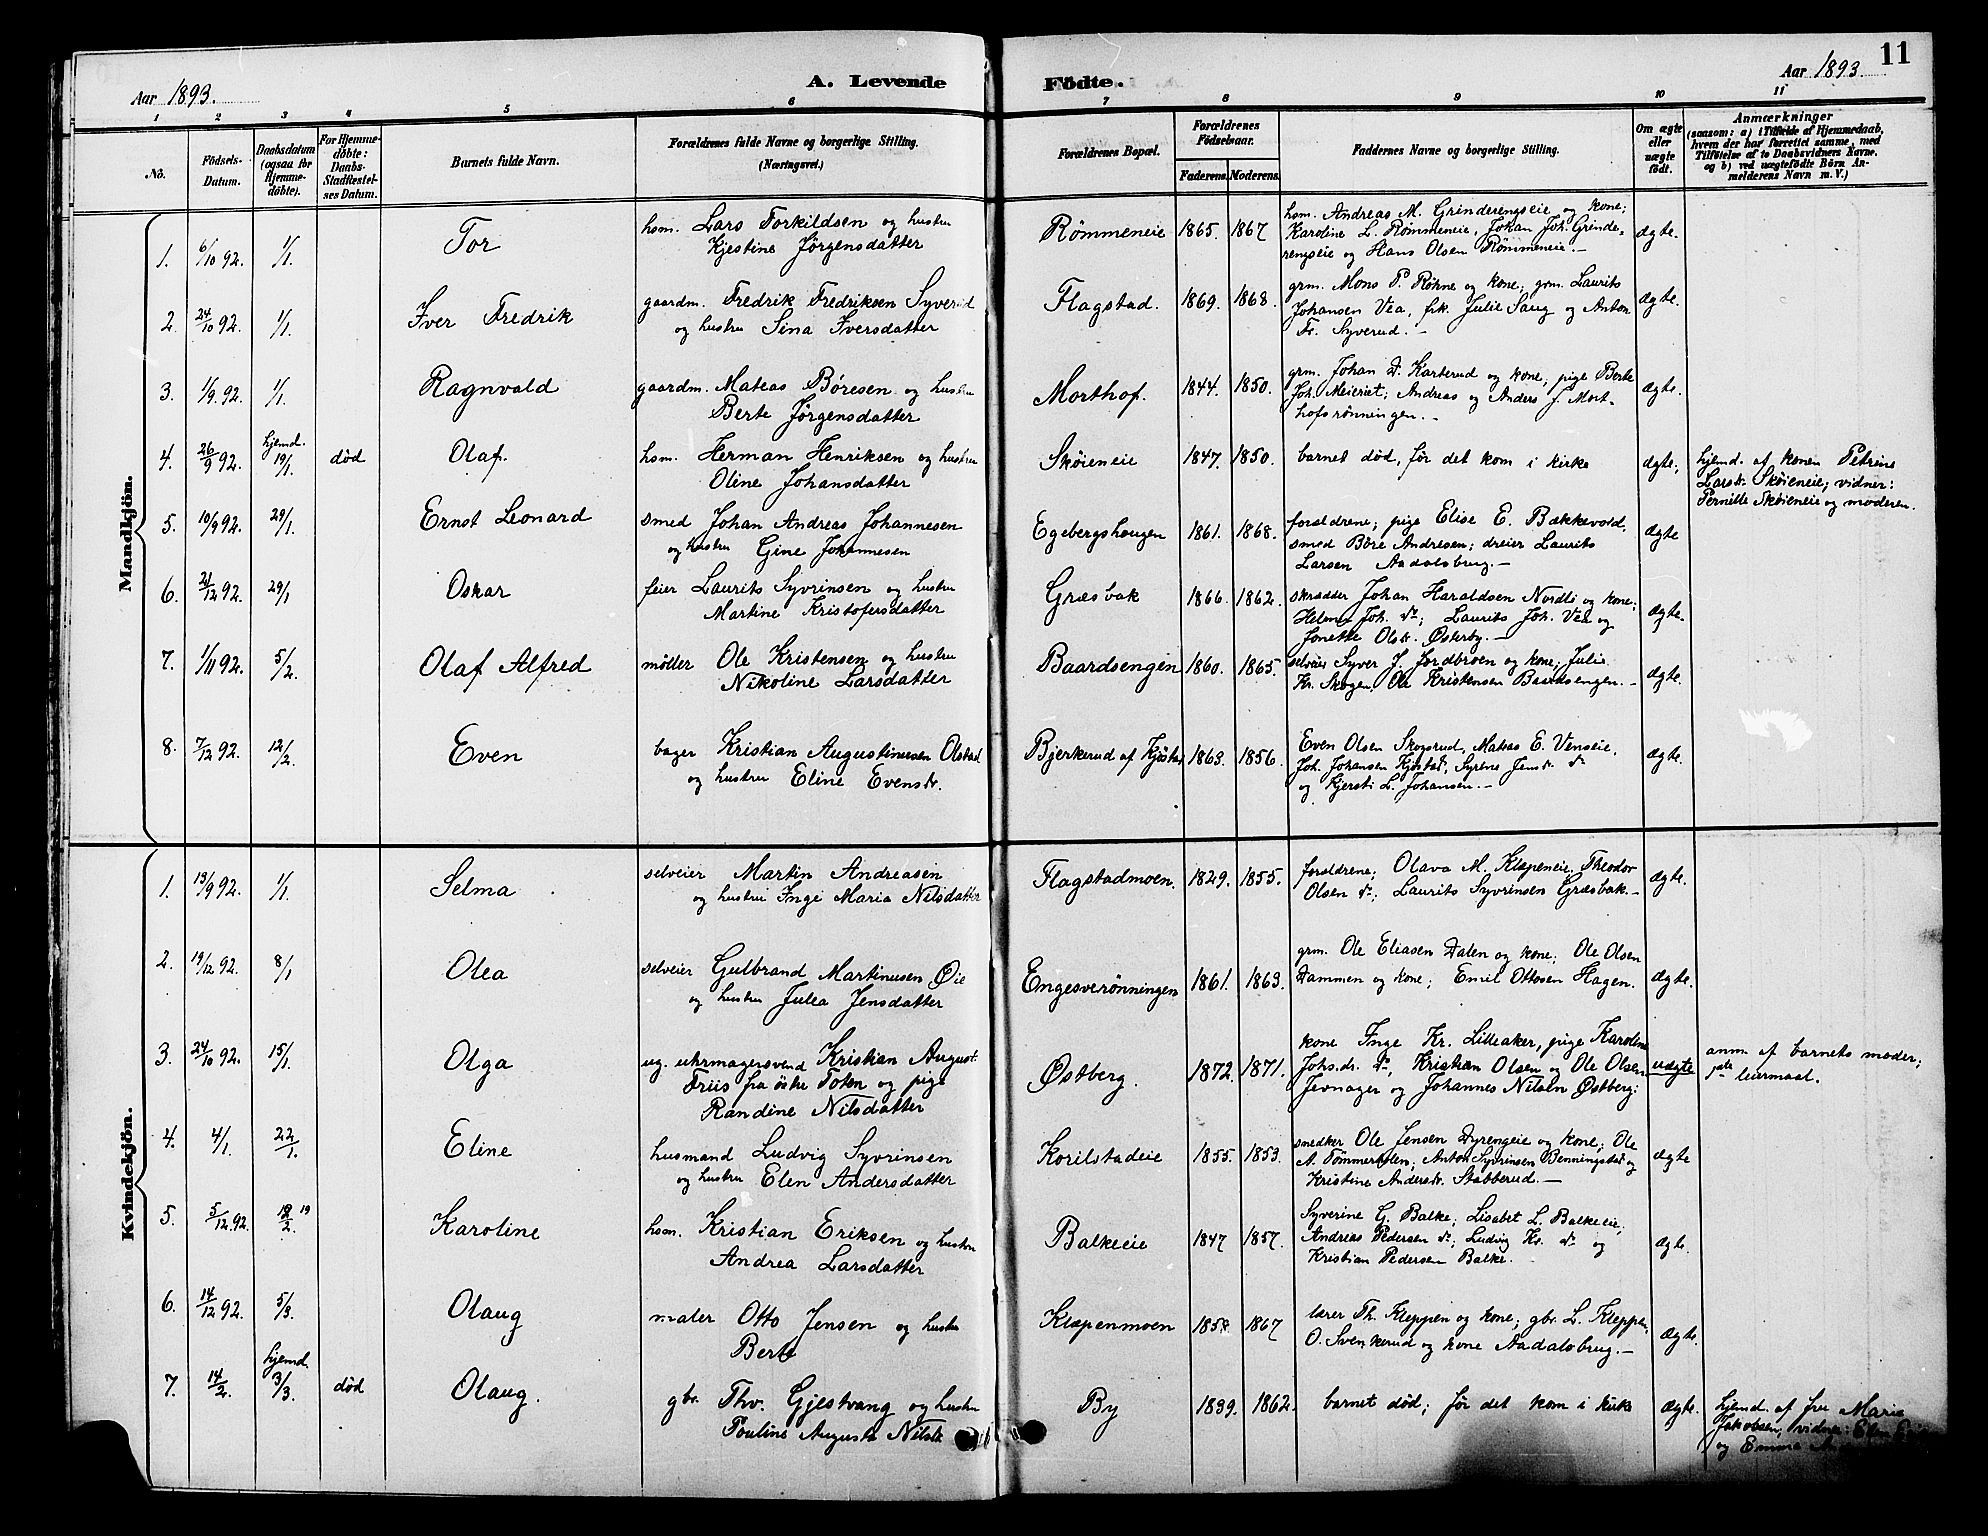 11
Aar 1893.
A. Levende
Födte.
Aar 1893.
1 2 3 4 5 6 7 8 9 10 11
No.
Födsels-
Datum.
Daabsdatum
(ogsaa for
Hjemme-
döbte).
For Hjemme-
döbte:
Daabs-
Stadfæstel-
ses Datum.
Barnets fulde Navn.
Forældrenes fulde Navne og borgerlige Stilling.
(Næringsvei.)
Forældrenes Bopæl.
Forældrenes
Födselsaar.
Faderens. Moderens.
Faddernes Navne og borgerlige Stilling.
Om ægte
eller
uægte
födt.
Anmærkninger
(saasom: a) i Tilfælde af Hjemmedaab,
hvem der har forrettet samme, med
Tilföielse af to Daabsvidners Navne.
og b) ved uægtefödte Börn An-
melderens Navn m. V.)
Mandkjön.
1. 6/10 92. 1/1. Tor
hsm. Lars Torkildsen og hustru
Kjestine Jørgensdatter
Rømmeneie 1865. 1867
hsm. Andreas M. Grinderengseie og kone;
Karoline L. Rømmeneie, Johan Joh. Grinde-
rengseie og Hans Olsen Rømmeneie.-
ægte.
2. 24/10 92. 1/1. Iver Fredrik
gaardm. Fredrik Fredriksen Syverud
og hustru Sina Iversdatter
Flagstad. 1869. 1868.
grm. Mons P. Røhne og kone; grm. Laurits
Johansen Vea, frk. Julie Saug og Anton
Fr. Syverud.-
ægte.
3. 1/9. 92. 1/1. Ragnvald
gaardm. Mateas Børesen og hustru
Berte Jørgensdatter
Morthof. 1844. 1850.
grm. Johan D. Karterud og kone; pige Berte
Joh. Meieriet; Andreas og Anders J. Mort-
hofsrønningen.-
ægte.
4. 26/9 92. hjemd. 19/1. død Olaf.
hsm. Herman Henriksen og hustru
Oline Johansdatter
Skøieneie 1847. 1850.
barnet død, før det kom i kirke
ægte;
hjemd. af konen Petrine
Larsdr. Skøieneie; vidner:
Pernille Skøieneie og moderen.
5. 10/9 92. 29/1. Ernst Leonard
smed Johan Andreas Johannesen
og hustru Gine Johannesen
Egebergshaugen 1861. 1868.
forældrene; pige Elise E. Bækkevold,
smed Børe Andresen; dreier Laurits
Larsen Aadalsbrug.-
ægte
6. 21/12 92. 29/1 Oskar
feier Laurits Syvrinsen og hustru
Martine Kristofersdatter
Græsbak 1866. 1862.
skrædder Johan Haraldsen Nordli og kone;
Helmer Joh. do; Laurits Joh. Vea og
Jonette Olsdr. Østerby.-
ægte.
7. 1/11 92. 5/2. Olaf Alfred
møller Ole Kristensen og hustru
Nikoline Larsdatter
Baardsengen 1860. 1865.
selveier Syver J. Jordbroen og kone; Julie
Kr. Skogen, Ole Kristensen Baardsengen.-
ægte.
8. 7/12 92. 12/2. Even
bager Kristian Augustinusen Olstad
og hustru Eline Evensdr.
Bjerkerud af Kjøstad 1863. 1856.
Even Olsen Skogsrud, Mateas E. Venseie,
Joh. Johansen Kjøstad, Syrene Jensdr. do
og Kjersti L. Johansen.-
ægte.
Kvindekjön.
1. 13/9 92. 1/1. Selma
selveier Martin Andreasen
og hustru Inge Maria Nilsdatter
Flagstadmoen. 1829. 1855.
forældrene; Olava M. Klæpeneie, Theodor
Olsen do; Laurits Syvrinsen Græsbak.-
ægte.
2. 19/12 92. 8/1 Olea
selveier Gulbrand Martinusen Øie
og hustru Julea Jensdatter
Engesverønningen 1861. 1863.
grm. Ole Eliasen Dalen og kone; Ole Olsen
Dammen og kone; Emil Ottosen Hagen.
ægte.
3. 24/10 92. 15/1. Olga
ug. uhrmagersvend Kristian August
Friis fra østre Toten og pige
Randine Nilsdatter
Østberg. 1872. 1871.
kone Inge Kr. Lilleaker, pige Karoline
Johs.dr. do, Kristian Olsen og Ole Olsen
Jevnager og Johannes Nilsen Østberg:
uægte
anm. af barnets moder;
1ste leiermaal.
4. 4/1. 22/1. Eline
husmand Ludvig Syvrinsen
og hustru Elen Andersdatter
Korilstadeie 1855. 1853.
snedker Ole Jensen Dyrengeie og kone; Ole
A. Tømmerholen; Anton Syvrinsen Benningstad og
Kristine Andersdr. Stabberud.-
ægte
5. 5/12. 92. 12/2. 19 Karoline
hsm. Kristian Eriksen og hustru
Andrea Larsdatter
Balkeeie 1847 1857.
Syverine G. Balke; Lisabet L. Balkeeie;
Andreas Pedersen do; Ludvig Kr. do og
Kristian Pedersen Balke.
ægte.
6. 14/12 92. 5/3. Olaug
maler Otto Jensen og hustru
Berte
Klæpenmoen 1858. 1867
lærer Th. Kleppen og kone; gbr. L. Kleppen,
O. Svenkerud og kone Aadalsbrug.-
ægte.
7. 14/2. hjemd. 3/3. død Olaug.
gbr. Thv. Gjestvang og hustru
Pouline Augusta Nilsdr.
By 1839. 1862.
barnet død; før det kom i kirke
ægte.
hjemd. af fru Maria
Jakobsen, vidner: Elen
og Emma